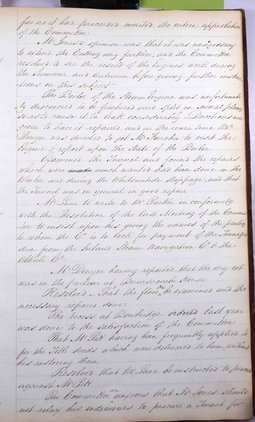 far as it had proceeded merited the entire approbation
of the Committee.
Mr Jones's opinion was that it was unnecessary
to obtain the Casting any further, and the Committee
resolved to see the result of the Engines work during
the Summer and Autumn before giving further instruc
tions on this subject.
The Boiler of the Steam Engine was unfortunate
ly discovered to be fractured and split in several places
so as to cause it to leak considerably. Directions were
given to have it repaired and in the mean time Mr
was directed to get Mr to visit the
Engine & report upon the State of the Boiler.
Examined the Tunnel and found the repairs
which were most wanted had been done in the
Winter and during the Whitsuntide Stoppage, and that
the Tunnel was in general in good repair.
Mr Lane to wish to Mr in conformity
with the Resolution of the last Meeting of the Commit
tee to insist upon his giving the names of the
to whom the Co. is to look for payment of the Tonnages
due from the Inland Steam Navigation Co. & the
Co.
Mr Dwyer having reported that the dry rot
was in the floor at House
Resolved That the floor be examined and the
necessary repairs done.
The recess at ordered last year
was done to the satisfaction of the Committee.
That Mr Hill having been frequently applied to
for the Title deeds which were delivered to him without
his restoring them
Resolved that Mr Lane be instructed to proceed
against Mr Hill.
The Committee are anxious that Mr Jones should
not relax his endeavours to procure a Tenant for